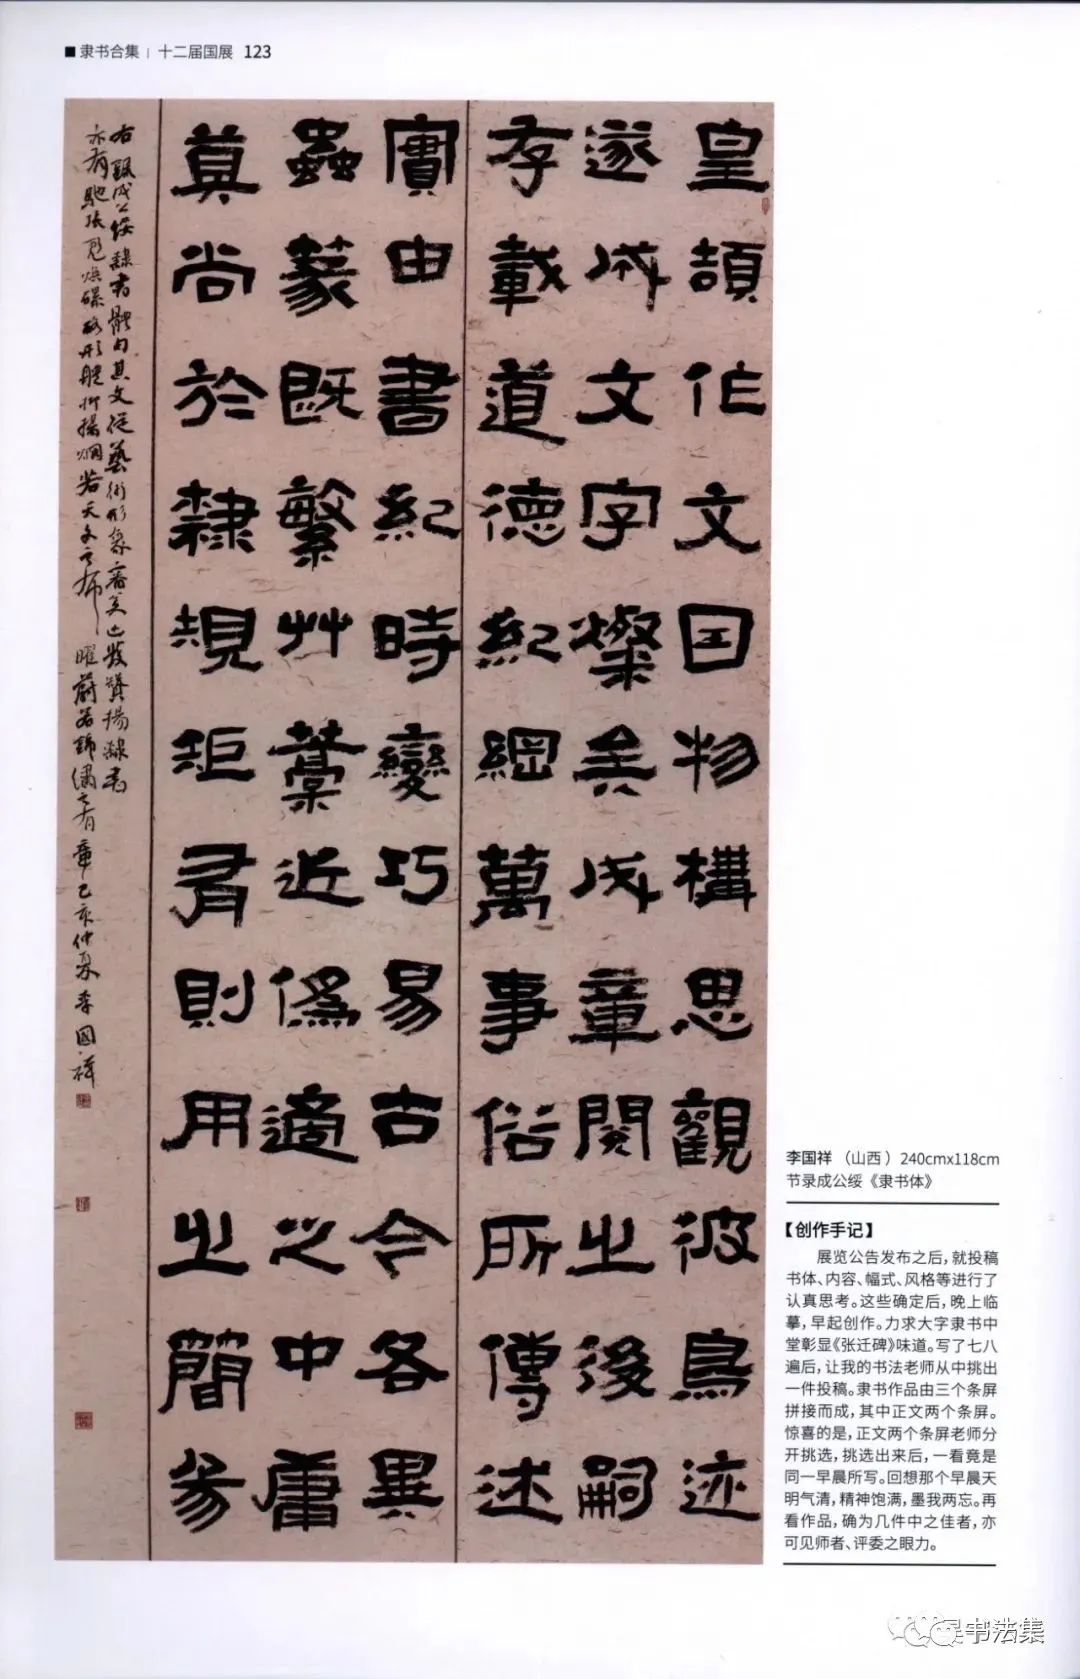 隶书合集 | 十二届国展 123
皇頡作文因物構思觀彼鳥迹
遂成文字燦矣成章閱之後嗣
存載道德紀綱萬事俗所傳述
實由書紀時變巧易古今各異
蟲篆既繁艸藁近偽適之中庸
莫尚於隸規矩有則用之簡易
己亥仲夏李國祥
李国祥（山西）240cmx118cm
节录成公绥《隶书体》
【创作手记】
展览公告发布之后，就投稿
书体、内容、幅式、风格等进行了
认真思考。这些确定后，晚上临
摹，早起创作。力求大字隶书中
堂彰显《张迁碑》味道。写了七八
遍后，让我的书法老师从中挑出
一件投稿。隶书作品由三个条屏
拼接而成，其中正文两个条屏。
惊喜的是，正文两个条屏老师分
开挑选，挑选出来后，一看竟是
同一早晨所写。回想那个早晨天
明气清，精神饱满，墨我两忘。再
看作品，确为几件中之佳者，亦
可见师者、评委之眼力。
书法集